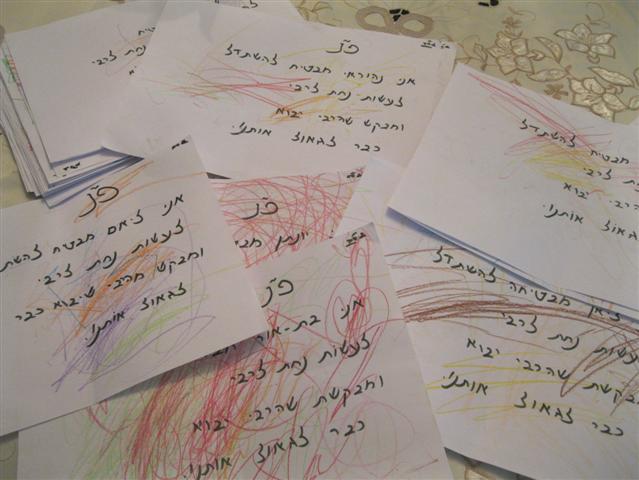 ב"ה
פ"נ
אני נהוראי מבטיח להשתדל
לעשות נחת לרבי
ומבקש שהרבי יבוא
כבר לגאול אותנו.
מבטיח להשתדל
לרבי
יבוא
אותנו.
פ"נ
אני ליאם מבטיח להשת
לעשות נחת לרבי.
ומבקש מהרבי שיבוא כבר
לגאול אותנו.
פ"נ
יונתן
ב"ה
פ"נ
אני בת-אור
לעשות נחת לרבי.
ומבקשת שהרבי יבוא
כבר לגאול אותנו.
מבטיחה להשתדל
לעשות נחת לרבי
ומבקשת שהרבי יבוא
כבר לגאול אותנו.